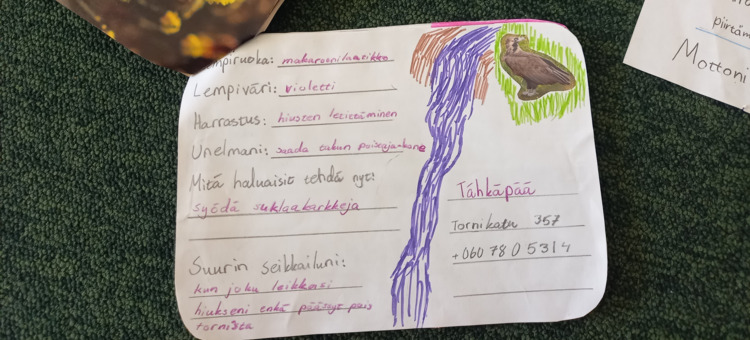 mpiruoka: makaroonilaatikko
Lempiväri: violetti
Harrastus: hiusten letittäminen
Unelmani: saada takun poistaja-kone
Mitä haluaisit tehdä nyt:
syödä suklaakarkkeja
Suurin seikkailuni:
kun joku leikkasi
hiukseni enkä päässyt pois
tornista
Tähkäpää
Tornikatu 357
+060 78 0 5314
piirtäm
Mottoni